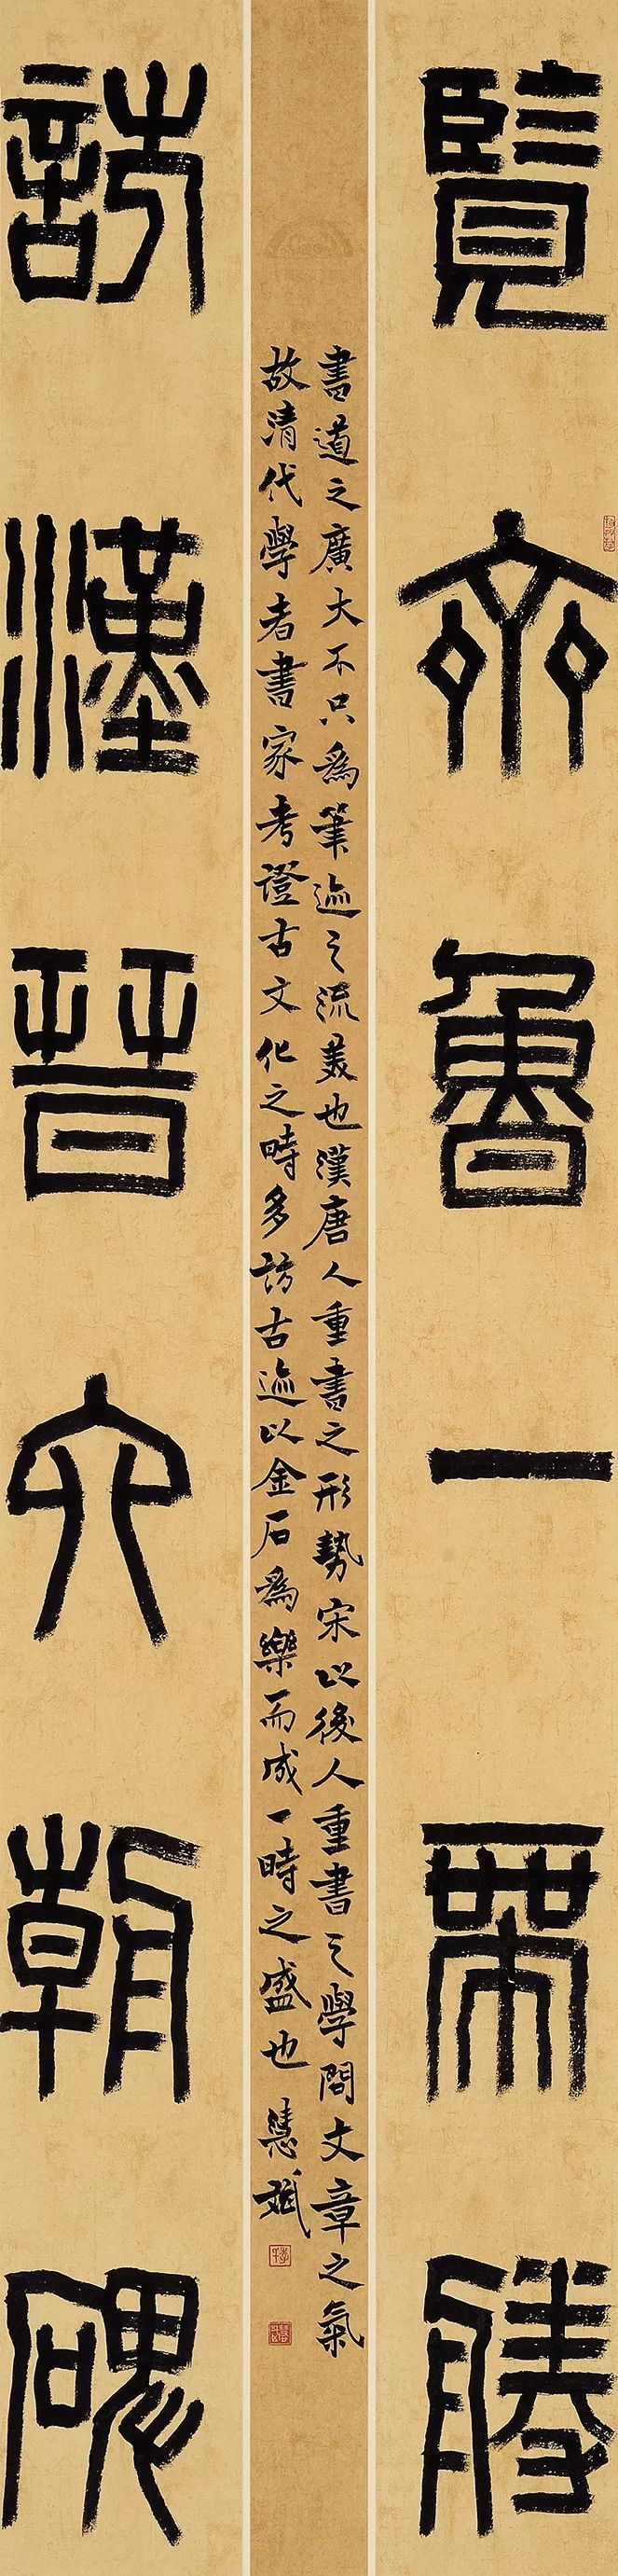 覽齊魯一帶勝
書道之廣大不只爲筆迹之流美也漢唐人重書之形勢宋以後人重書之學問文章之氣
故清代學者書家考證古文化之時多訪古迹以金石爲樂而成一時之盛也 慧斌
訪漢晉六朝碑